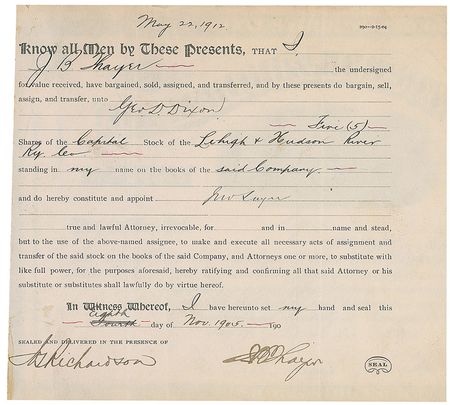 May 22, 1912.
Know all Men by These Presents, THAT I
J B Thayer the undersigned
for value received, have bargained, sold, assigned, and transferred, and by these presents do bargain, sell,
assign, and transfer, unto Geo D. Dixon
Five (5)
Shares of the Capital Stock of the Lehigh & Hudson River
Ry. Co
standing in my name on the books of the said Company
and do hereby constitute and appoint
true and lawful Attorney, irrevocable, for and in name and stead,
but to the use of the above-named assignee, to make and execute all necessary acts of assignment and
transfer of the said stock on the books of the said Company, and Attorneys one or more, to substitute with
like full power, for the purposes aforesaid, hereby ratifying and confirming all that said Attorney or his
substitute or substitutes shall lawfully do by virtue hereof.
In Witness Whereof, I have hereunto set my hand and seal this
Eighth
Fourth day of Nov. 1905. 190
SEALED AND DELIVERED IN THE PRESENCE OF
Richardson J B Thayer SEAL